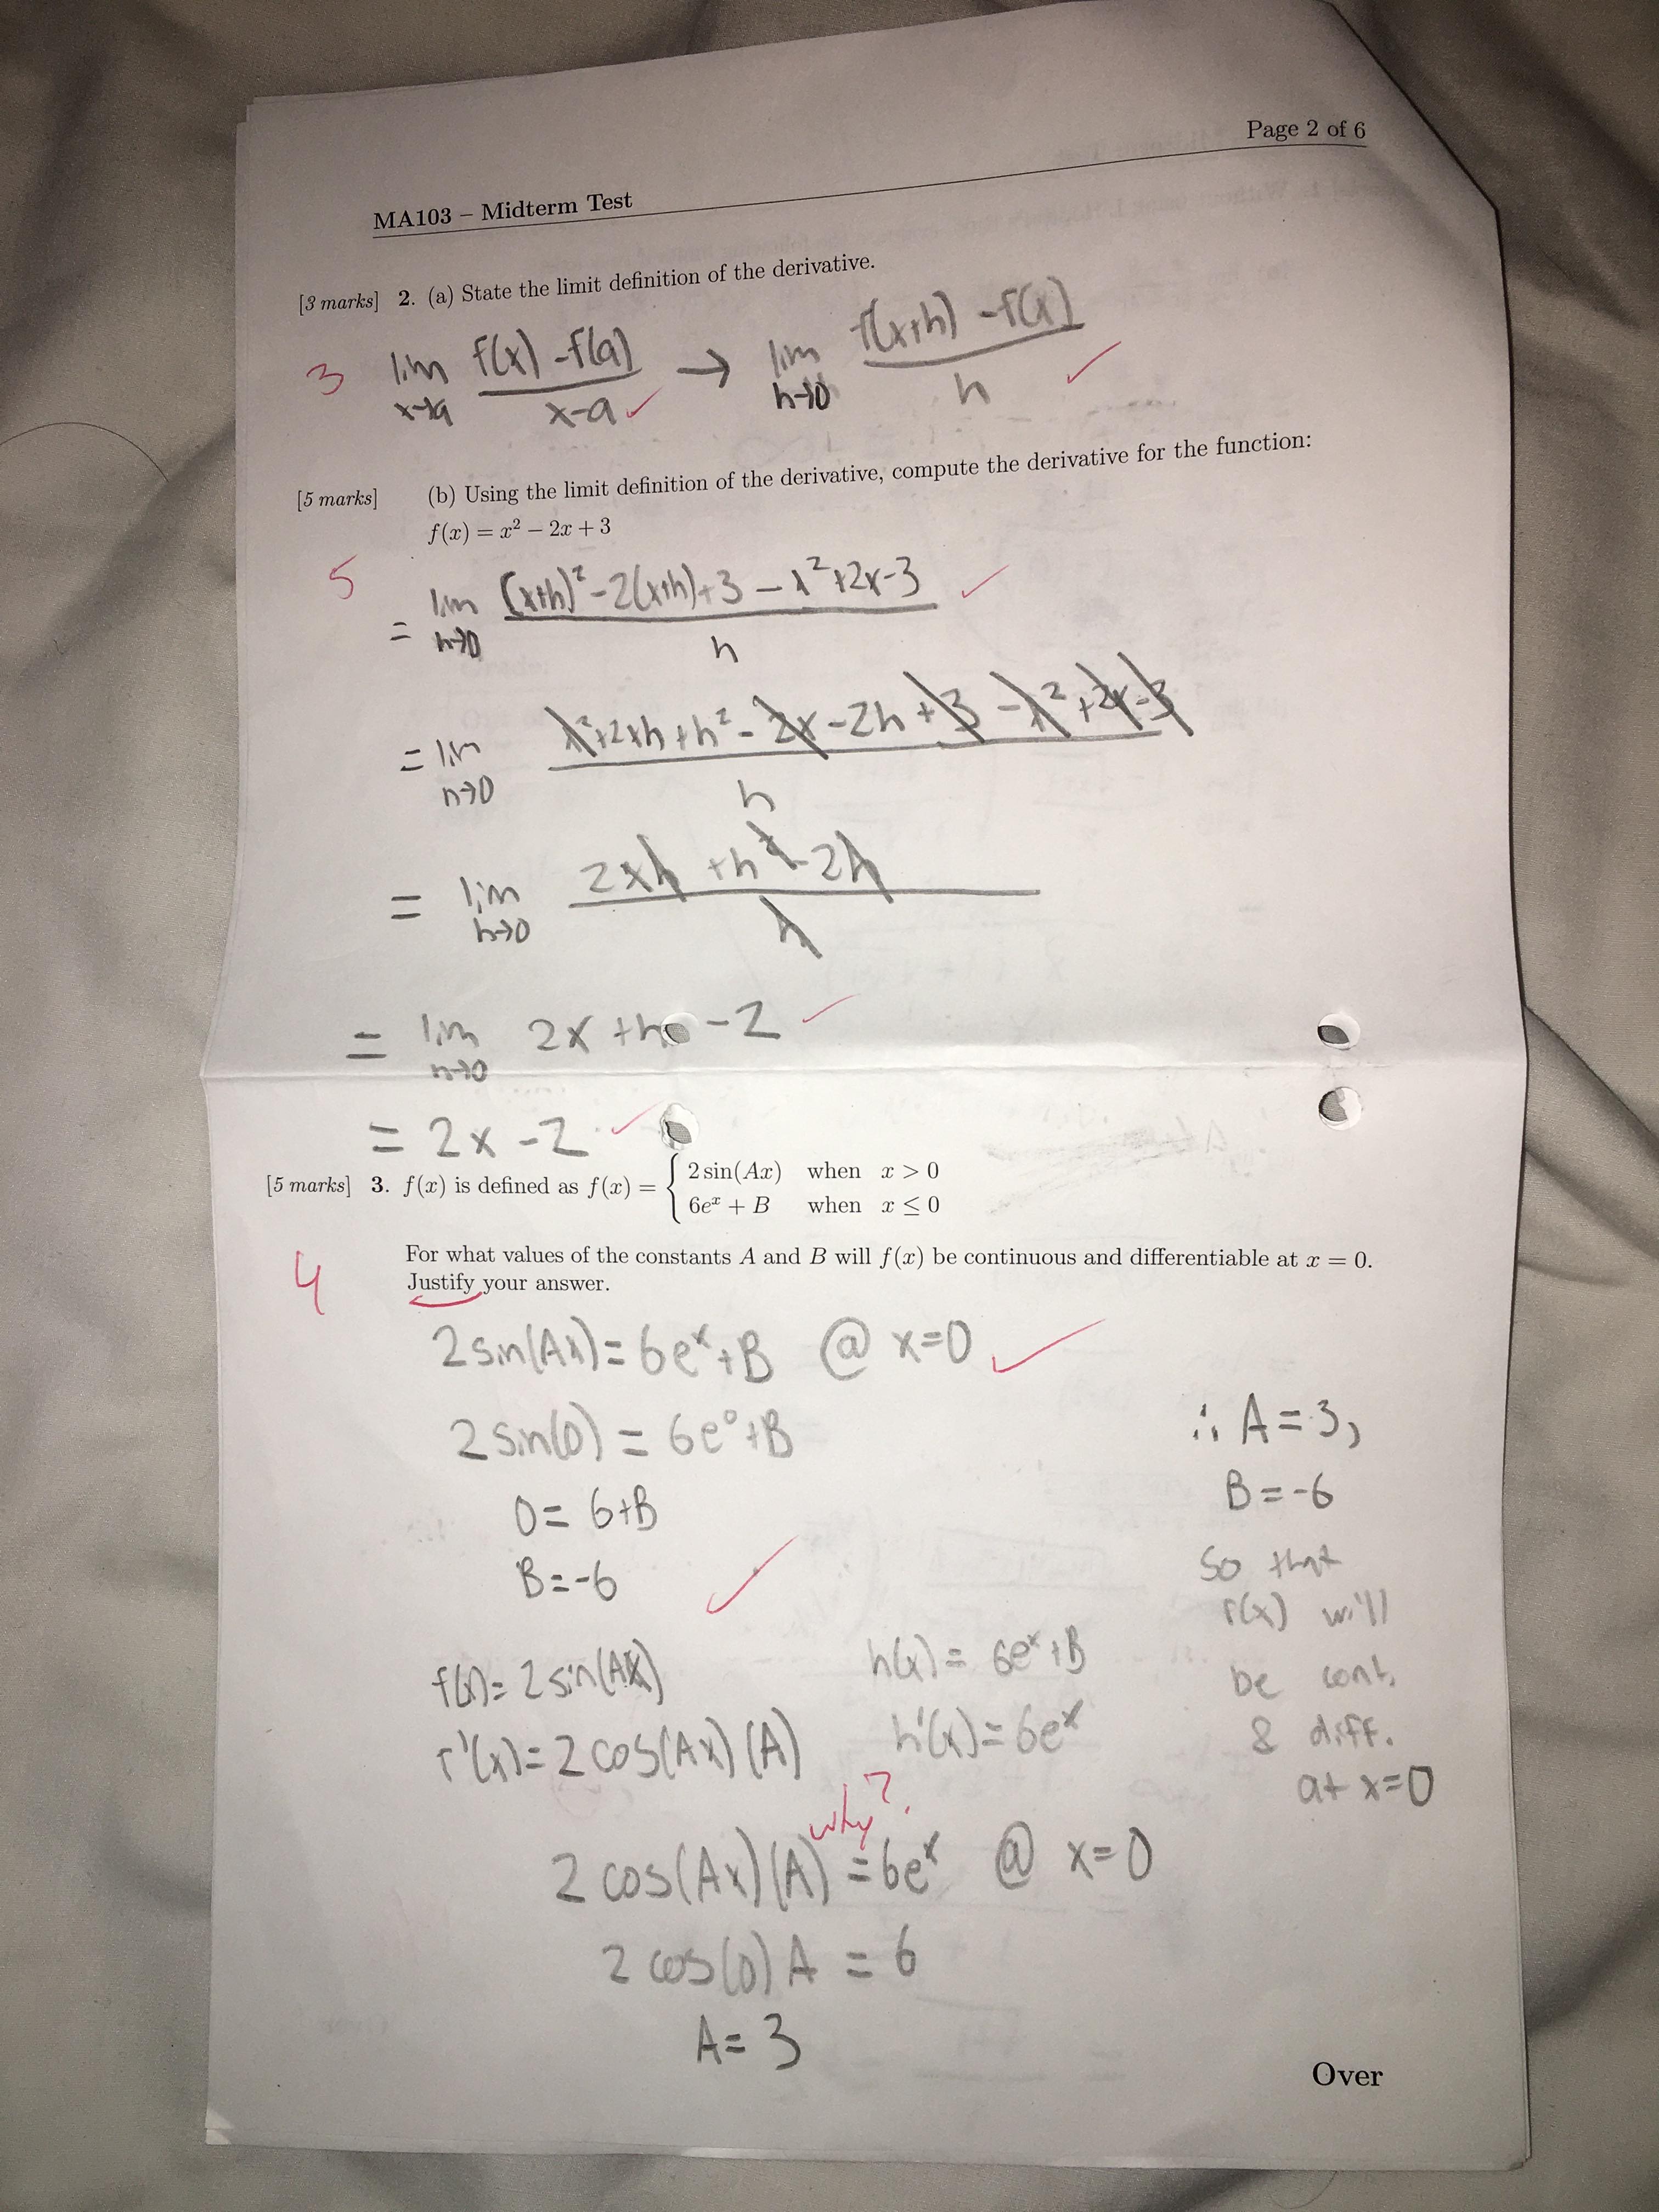 Page 2 of 6
MA103 – Midterm Test
[3 marks] 2. (a) State the limit definition of the derivative.
3 lim x→a (f(x) - f(a))/(x-a) ✓ → lim h→0 (f(x+h) - f(x))/h ✓
[5 marks] (b) Using the limit definition of the derivative, compute the derivative for the function:
f(x) = x² − 2x + 3
5
= lim h→0 ((x+h)² - 2(x+h) + 3 - x² + 2x - 3)/h ✓
= lim h→0 (x² + 2xh + h² - 2x - 2h + 3 - x² + 2x - 3)/h
= lim h→0 (2xh + h² - 2h)/h
= lim h→0 2x + h - 2 ✓
= 2x - 2 ✓
[5 marks] 3. f(x) is defined as f(x) = { 2 sin(Ax) when x > 0
6eˣ + B when x ≤ 0
4 For what values of the constants A and B will f(x) be continuous and differentiable at x = 0.
Justify your answer.
2sin(Ax) = 6eˣ + B @ x=0 ✓
2sin(0) = 6e⁰ + B
0 = 6+B
B = -6 ✓
f(x) = 2sin(Ax)
f'(x) = 2cos(Ax)(A)
h(x) = 6eˣ + B
h'(x) = 6eˣ
why?
2cos(Ax)(A) = 6eˣ @ x=0
2cos(0)A = 6
A = 3
∴ A = 3,
B = -6
so that
f(x) will
be cont.
& diff.
at x=0
Over